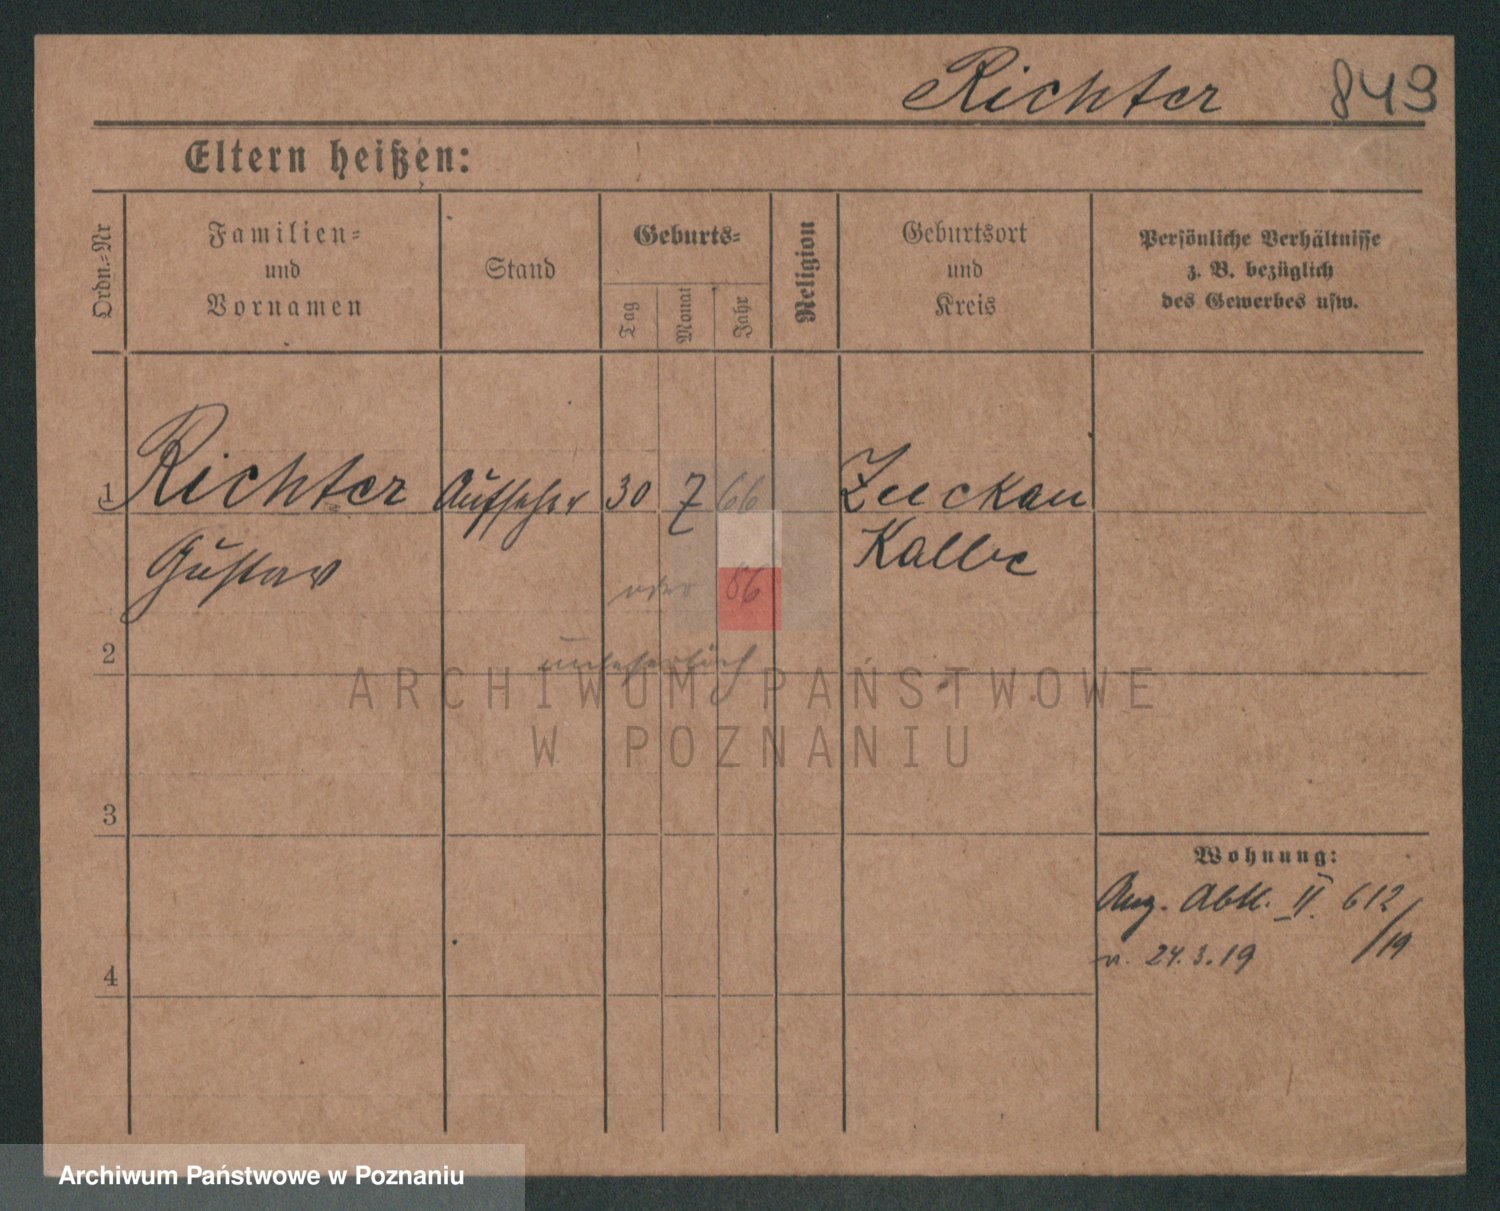 Richter 849
Eltern heißen:
Ordn.=Nr
Familien=
und
Vornamen
Stand
Geburts=
Tag
Monat
Jahr
Religion
Geburtsort
und
Kreis
Persönliche Verhältnisse
z. B. bezüglich
des Gewerbes usw.
1 Richter Aufseher 30 7 66 Zuckau
Gustav Kalbe
oder 86
2
ARCHIWUM PAŃSTWOWE
W POZNANIU
3
Wohnung:
Abtl. II. 612/19
v. 24.3.19
4
Archiwum Państwowe w Poznaniu